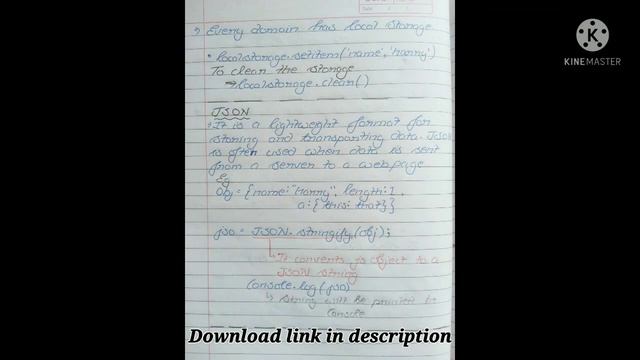 Every domain has local storage
• localstorage.setitem('name', 'Harry')
To clean the storage
→ localstorage.clear()
JSON
It is a lightweight format for
storing and transporting data. JSON
is often used when data is sent
from a server to a webpage
Eg
obj = {name: "Harry", length: 1,
a: {this: that}}
jso = JSON.stringify(obj);
↳ It converts js object to a
JSON string
Console.log(jso)
↳ string will be printed in
Console
Download link in description
K
KINEMASTER